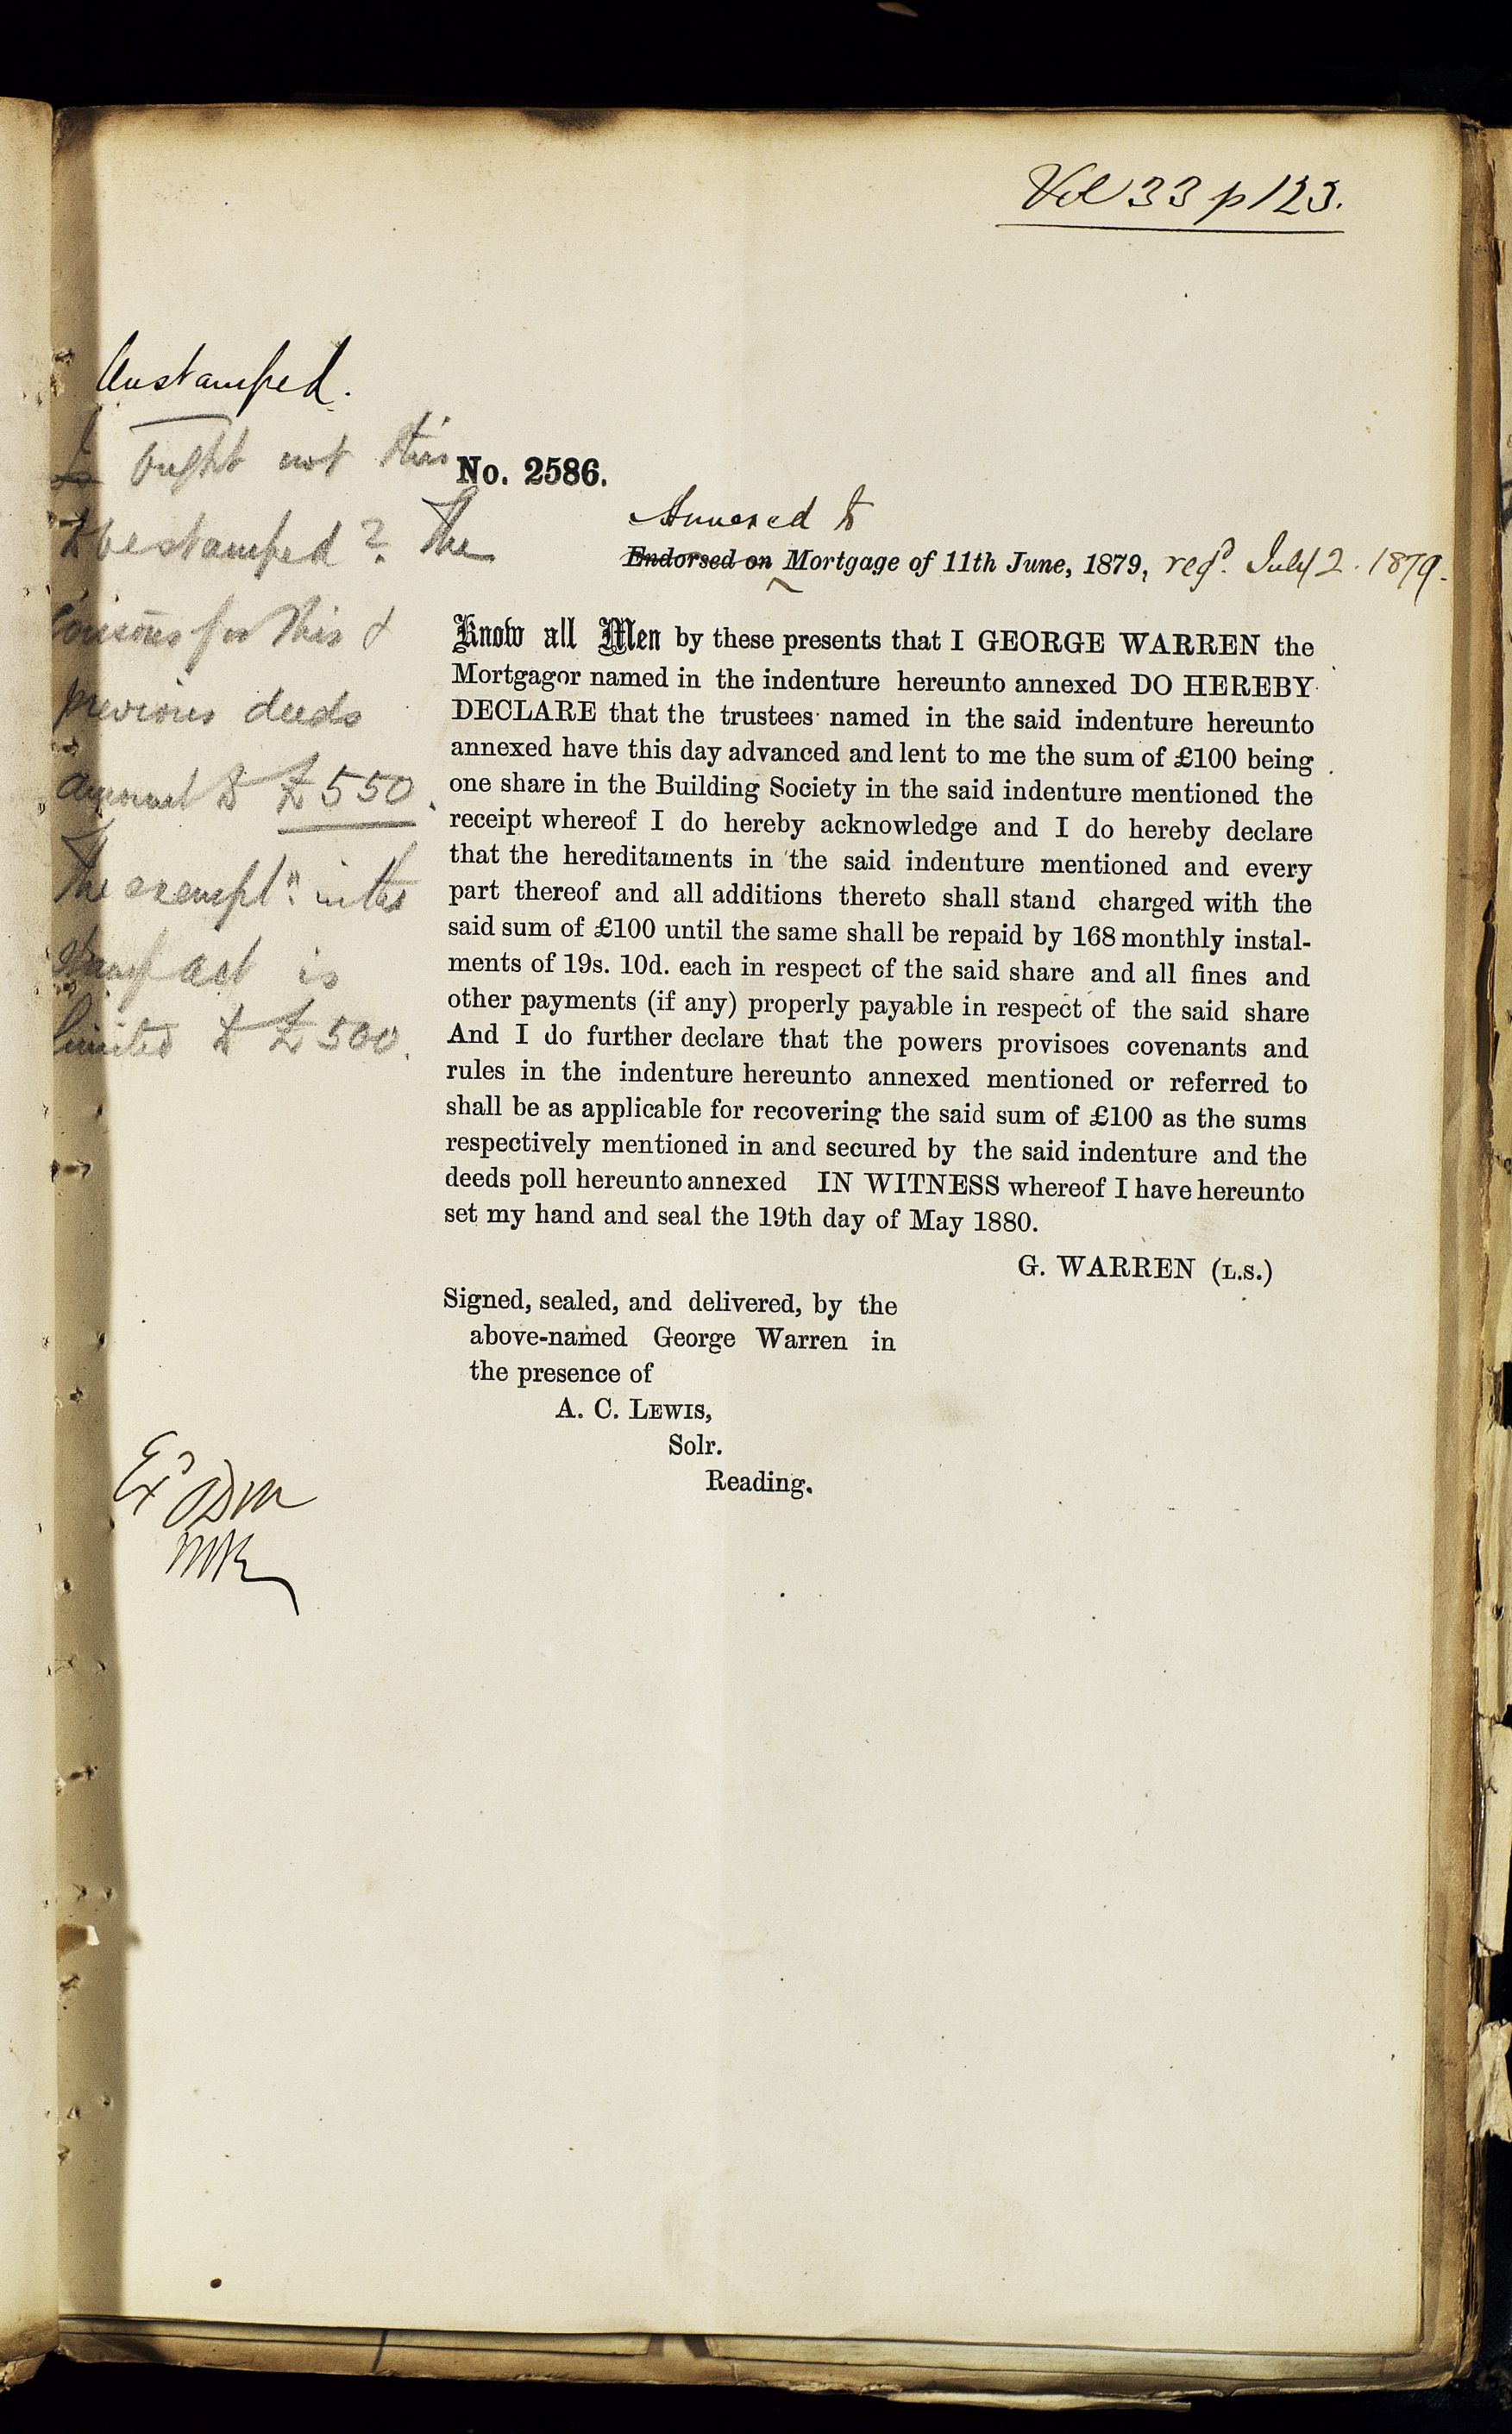 Vol 33 p 123.
Unstamped.
Ought not this
to be stamped? The
consōns for this &
previous deeds
amount to £550.
The exemptn. in the
stamp act is
limited to £500.
No. 2586.
Annexed to
Endorsed on Mortgage of 11th June, 1879, regd. July 2. 1879.
Know all Men by these presents that I GEORGE WARREN the
Mortgagor named in the indenture hereunto annexed DO HEREBY
DECLARE that the trustees named in the said indenture hereunto
annexed have this day advanced and lent to me the sum of £100 being
one share in the Building Society in the said indenture mentioned the
receipt whereof I do hereby acknowledge and I do hereby declare
that the hereditaments in the said indenture mentioned and every
part thereof and all additions thereto shall stand charged with the
said sum of £100 until the same shall be repaid by 168 monthly instal-
ments of 19s. 10d. each in respect of the said share and all fines and
other payments (if any) properly payable in respect of the said share
And I do further declare that the powers provisoes covenants and
rules in the indenture hereunto annexed mentioned or referred to
shall be as applicable for recovering the said sum of £100 as the sums
respectively mentioned in and secured by the said indenture and the
deeds poll hereunto annexed IN WITNESS whereof I have hereunto
set my hand and seal the 19th day of May 1880.
G. WARREN (L.S.)
Signed, sealed, and delivered, by the
above-named George Warren in
the presence of
A. C. LEWIS,
Solr.
Reading.
Exd